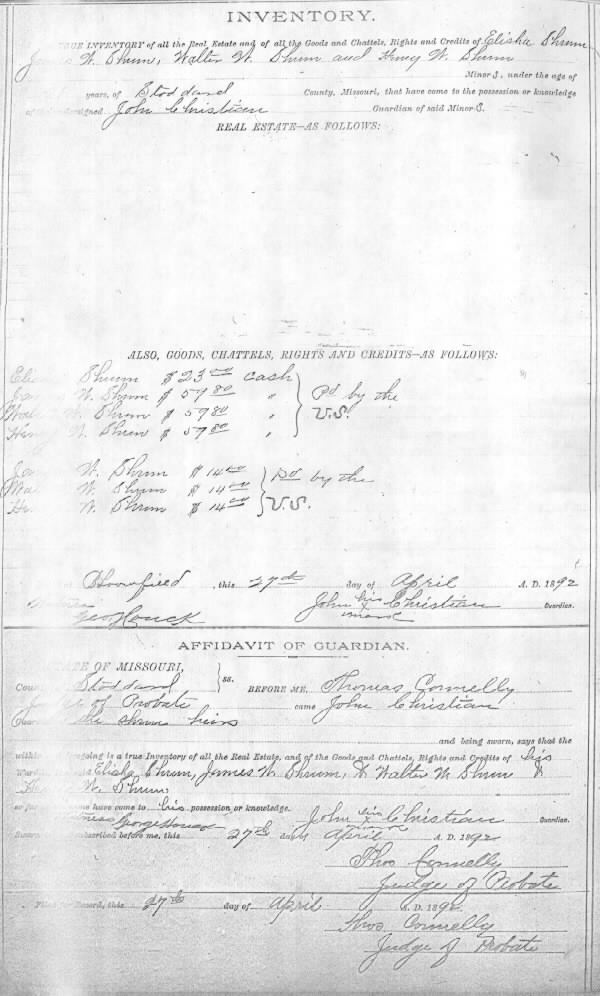 INVENTORY.
TRUE INVENTORY of all the Real Estate and of all the Goods and Chattels, Rights and Credits of Elisha Shrum
James W. Shrum, Walter W. Shrum and Henry W. Shrum
Minor S, under the age of
years, of Stoddard County, Missouri, that have come to the possession or knowledge
of the undersigned John Christian Guardian of said Minor S.
REAL ESTATE—AS FOLLOWS:
ALSO, GOODS, CHATTELS, RIGHTS AND CREDITS—AS FOLLOWS:
Shrum $ 23 00 cash
W. Shrum $ 57 80 " Pd by the
W. Shrum $ 57 80 " U.S.
W. Shrum $ 57 80 "
W. Shrum $ 14 00
W. Shrum $ 14 00 by the
W. Shrum $ 14 00 U.S.
Bloomfield , this 27th day of April A. D. 1892
John his x mark Christian Guardian.
Geo Houck
AFFIDAVIT OF GUARDIAN.
STATE OF MISSOURI,
Stoddard ss. BEFORE ME, Thomas Connelly
Judge of Probate came John Christian
the Shrum heirs
and being sworn, says that the
within foregoing is a true Inventory of all the Real Estate, and of the Goods and Chattels, Rights and Credits of his
Elisha Shrum, James W. Shrum, & Walter W. Shrum &
W. Shrum
have come to his possession or knowledge.
John his x mark Christian Guardian.
George Houck
subscribed before me, this 27th day April A. D. 1892
Thos Connelly
Judge of Probate
Filed for Record, this 27th day of April A. D. 1892
Thos. Connelly
Judge of Probate